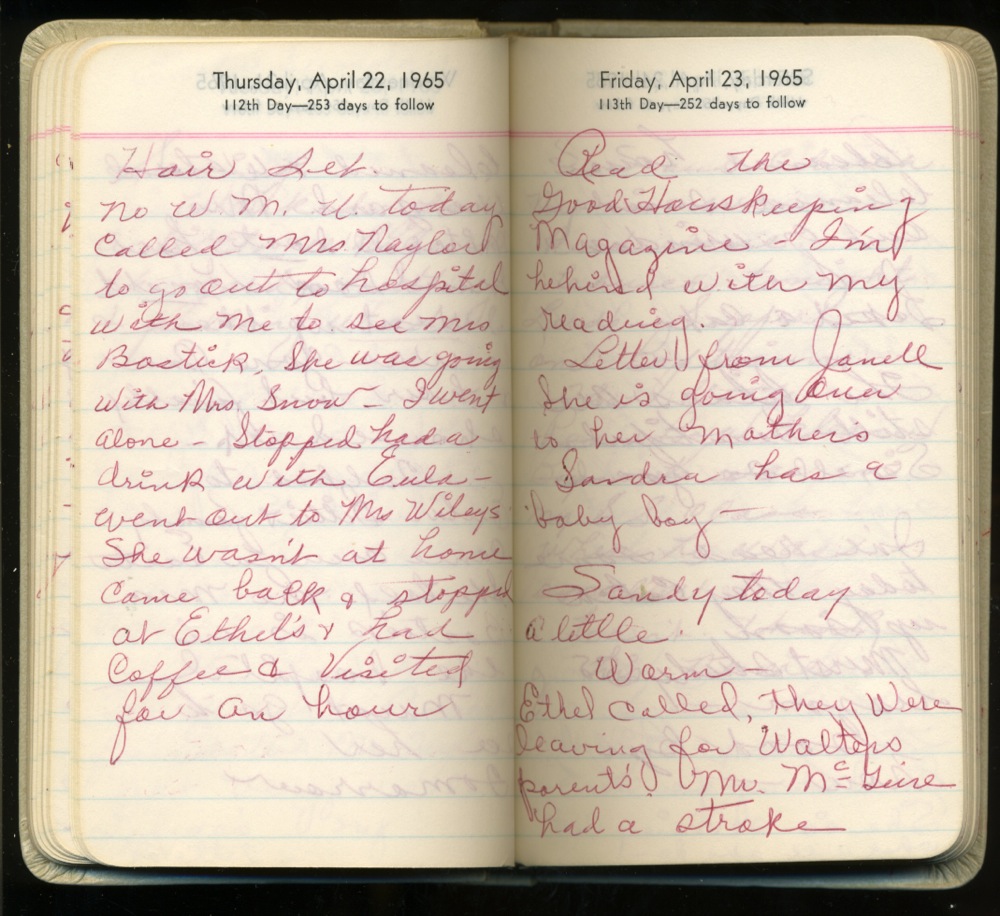 Thursday, April 22, 1965
112th Day—253 days to follow
Hair Set.
No W. M. U. today
Called Mrs Naylor
to go out to hospital
with me to see Mrs
Bostick, She was going
with Mrs. Snow - I went
alone - Stopped had a
drink with Eula -
went out to Mrs Wileys
She wasn't at home
Come back & stopped
at Ethel's & had
Coffee & Visited
for an hour
Friday, April 23, 1965
113th Day—252 days to follow
Read the
Good Houskeeping
Magazine - I'm
behind with my
reading.
Letter from Janell
She is going over
to her Mothers
Sandra has a
baby boy -
Sandy today
a little.
Warm -
Ethel called, they were
leaving for Walters
parents'. Mr. McGuire
had a stroke